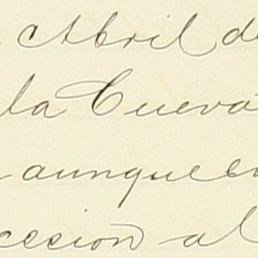 Abril de
la Cueva
aunque
cesion al